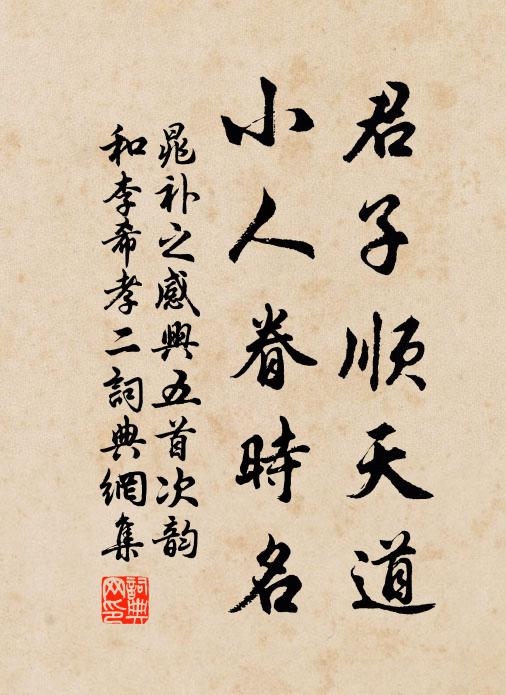 君子順天道
小人眷時名
晁补之感興五首次韵
和李希孝二詞典網集
詞典
网印